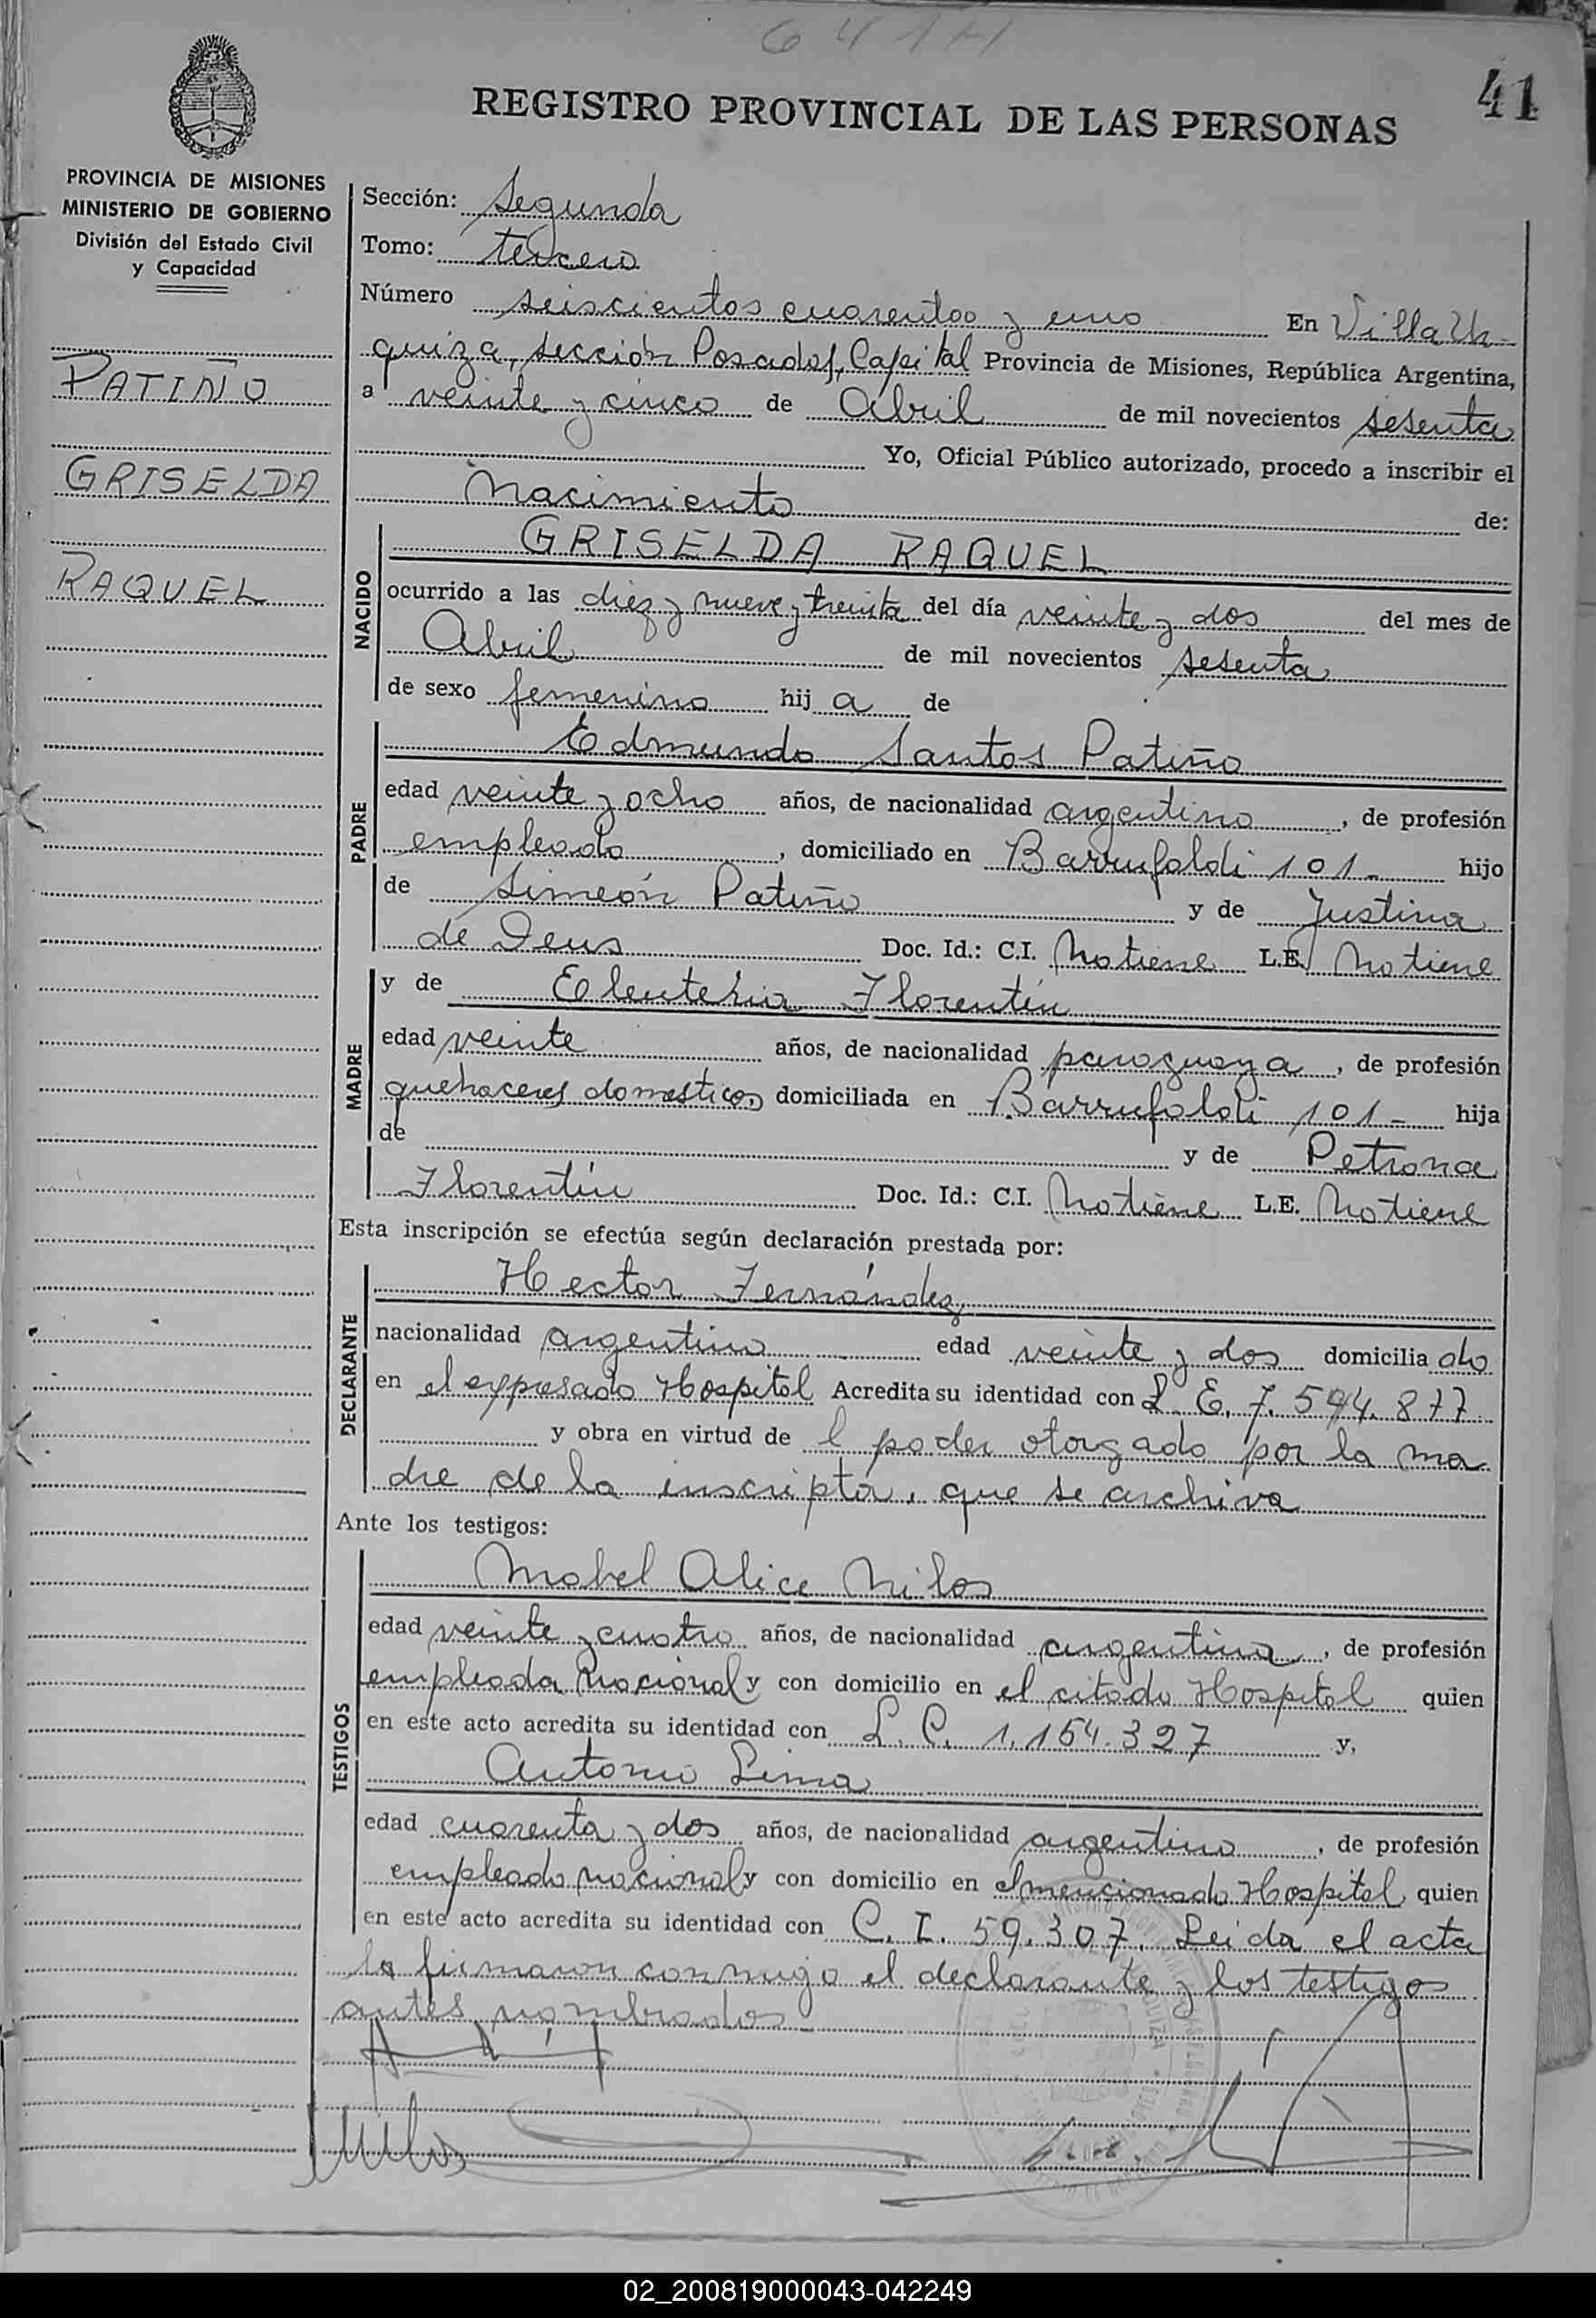 641 H
41
REGISTRO PROVINCIAL DE LAS PERSONAS
PROVINCIA DE MISIONES
MINISTERIO DE GOBIERNO
División del Estado Civil
y Capacidad
PATIÑO
GRISELDA
RAQUEL
Sección: Segunda
Tomo: tercero
Número seiscientos cuarentaa y uno En Villa Ur-
quiza, sección Posadas, Capital Provincia de Misiones, República Argentina,
a veinte y cinco de Abril de mil novecientos sesenta
Yo, Oficial Público autorizado, procedo a inscribir el
Nacimiento de:
NACIDO
GRISELDA RAQUEL
ocurrido a las diez y nueve y treinta del día veinte y dos del mes de
Abril de mil novecientos sesenta
de sexo femenino hij a de
PADRE
Edmundo Santos Patiño
edad veinte y ocho años, de nacionalidad argentino, de profesión
empleado, domiciliado en Barrufaldi 101- hijo
de Simeón Patiño y de Justina
de Deus Doc. Id.: C.I. No tiene L.E. No tiene
MADRE
y de Eleuteria Florentín
edad veinte años, de nacionalidad paraguaya, de profesión
quehaceres domesticos, domiciliada en Barrufaldi 101- hija
de y de Petrona
Florentín Doc. Id.: C.I. No tiene L.E. No tiene
Esta inscripción se efectúa según declaración prestada por:
DECLARANTE
Hector Fernández
nacionalidad argentino edad veinte y dos domicilia do
en el expresado Hospital Acredita su identidad con L. E. 7.594.877
y obra en virtud de l poder otorgado por la ma
dre de la inscripta, que se archiva
Ante los testigos:
TESTIGOS
Mabel Alice Milos
edad veinte y cuatro años, de nacionalidad argentina, de profesión
empleada nacional y con domicilio en el citado Hospital quien
en este acto acredita su identidad con L. C. 1.154.327 y,
Antonio Lima
edad cuarenta y dos años, de nacionalidad argentino, de profesión
empleado nacional y con domicilio en el mencionado Hospital quien
en este acto acredita su identidad con C. I. 59.307. Leida el acta
la firmaron conmigo el declarante y los testigos
antes nombrados-
02_200819000043-042249